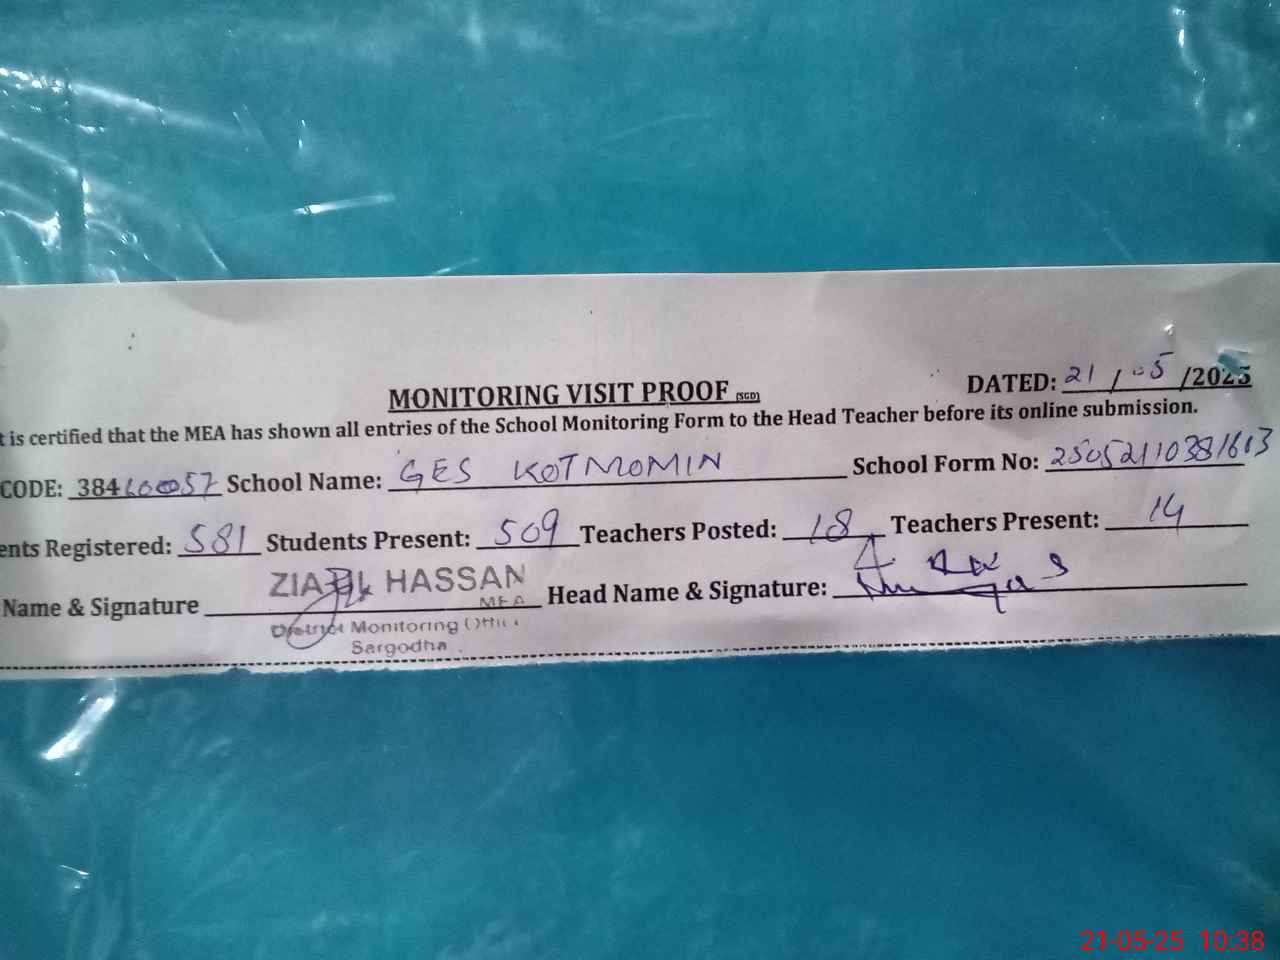 MONITORING VISIT PROOF (SGD) DATED: 21 / 05 /2025
t is certified that the MEA has shown all entries of the School Monitoring Form to the Head Teacher before its online submission.
CODE: 38460057 School Name: GES KOTMOMIN School Form No:
ents Registered: 581 Students Present: 509 Teachers Posted: 18 Teachers Present: 14
Name & Signature ZIA HASSAN Head Name & Signature:
MEA
District Monitoring Office
Sargodha
21-05-25 10:38